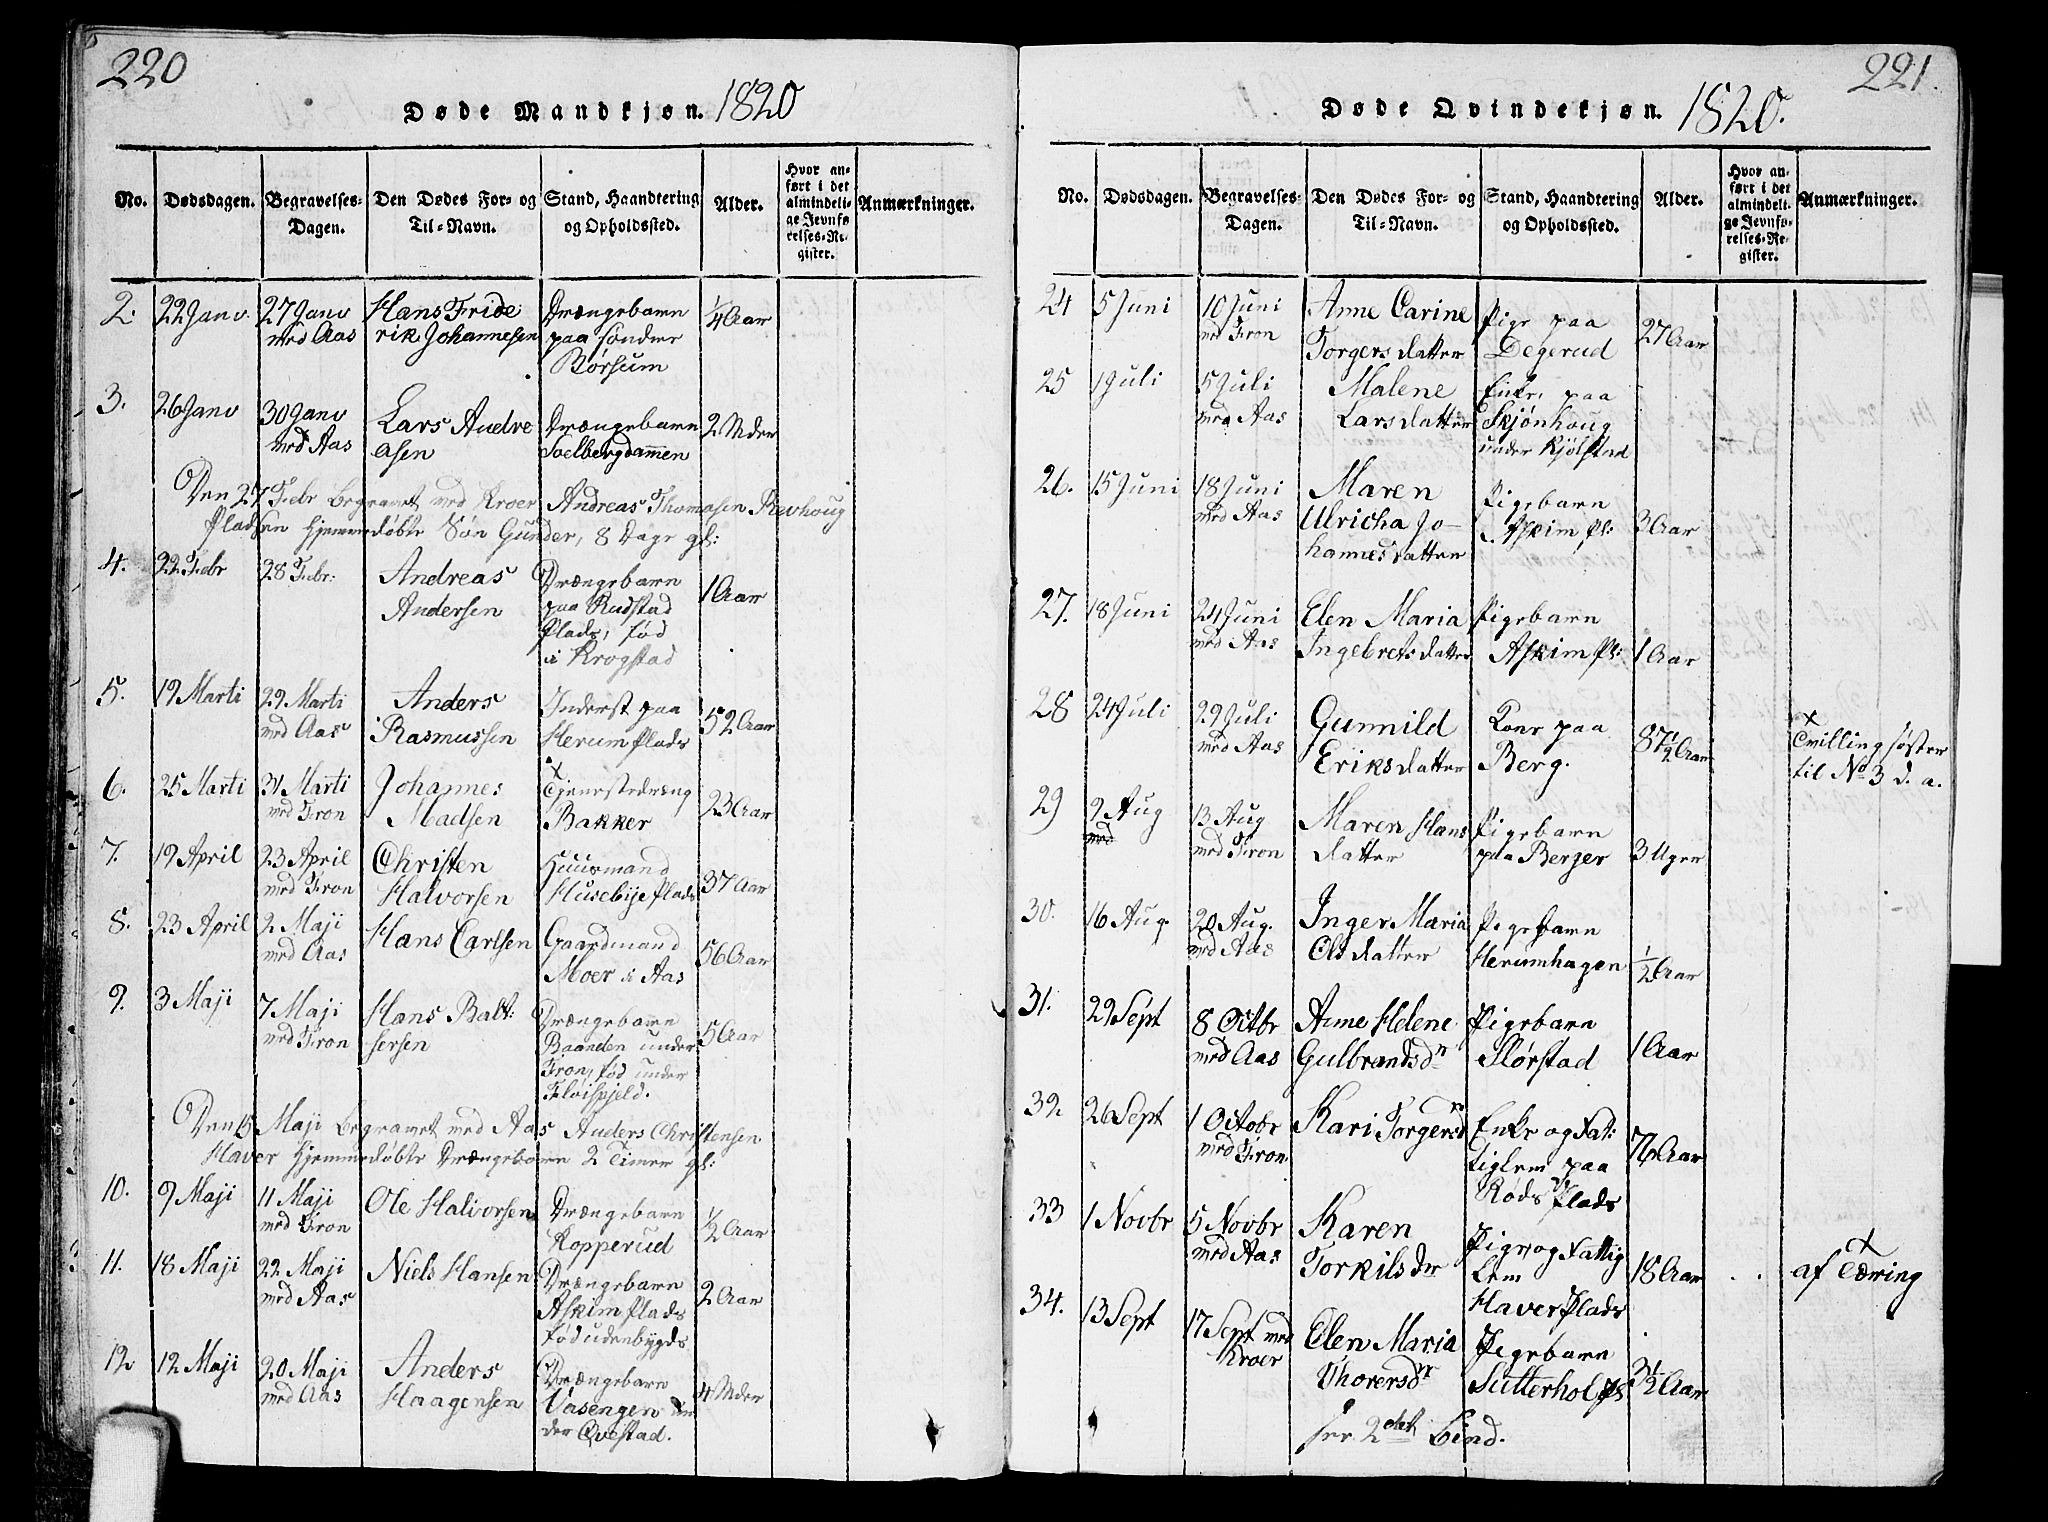 220
Døde Mandkjøn. 1820
No. Dødsdagen. Begravelses-Dagen. Den Dødes For- og Til-Navn. Stand, Haandtering og Opholdssted. Alder. Hvor anført i det almindelige Jevnførelses-Register. Anmærkninger.
2. 22 Janv. 27 Janv Hans Fride Drængebarn 1/4 Aar
med Aas rik Johannesen paa søndre
Børsum
3. 26 Janv 30 Janv Lars Andre Drængebarn 2 Mder
med Aas asen Soelbergdammen
Den 27 Febr Begravet med Kroer Andreas Thomasen Revhoug
Pladsen Hjemmedøbte Søn Gunder, 8 Dage gl:
4. 22 Febr 28 Febr: Andreas Drængebarn 1 Aar
Andersen paa Rudstad
Plads, fød
i Krogstad
5. 19 Marti 29 Marti Anders Inderst paa 52 Aar
med Aas Rasmussen Herum Plads
6. 25 Marti 31 Marti Johannes Tjenestedræng 23 Aar
med Fron Madsen Bakker
7. 19 April 23 April Christen Huusmand 37 Aar
med Fron Halvorsen Husebye Plads
8. 23 April 2 Maji Hans Carlsen Gaardmand 56 Aar
med Aas Moer i Aas
9. 3 Maji 7 Maji Hans Balt: Drængebarn 5 Aar
med Fron sersen Baanden under
Fron, fød under
Fløispjeld.
Den 15 Maji begravet med Aas Anders Christensen
Haver Hjemmedøbte Drængebarn 2 Timer gl:
10. 9 Maji 11 Maji Ole Halvorsen Drængebarn 1/2 Aar
med Fron Kopperud
11. 18 Maji 22 Maji Niels Hansen Drængebarn 2 Aar
med Aas Askim Plads
fød udenbygds
12. 12 Maji 20 Maji Anders Drængebarn 4 Mder
med Aas Haagensen Vasengen un
der Qvestad.
221.
Døde Qvindekjøn. 1820.
No. Dødsdagen. Begravelses-Dagen. Den Dødes For- og Til-Navn. Stand, Haandtering og Opholdssted. Alder. Hvor anført i det almindelige Jevnførelses-Register. Anmærkninger.
24 5 Juni 10 Juni Anne Carine Pige paa 27 Aar
med Fron Torgersdatter Degerud
25 1 Juli 5 Juli Malene Enke, paa
med Aas Larsdatter Skjønhoug
under Kjølstad
26. 15 Juni 18 Juni Maren Pigebarn 3 Aar
med Aas Ulricha Jo- Askim Pl:
hannesdatter
27. 18 Juni 24 Juni Elen Maria Pigebarn 1 Aar
med Aas Ingebretsdatter Askim Pl:
28 24 Juli 29 Juli Gunnild Kone paa 87 1/2 Aar Tvillingsøster
med Aas Eriksdatter Berg. til No 3 d. a.
29 9 Aug 13 Aug Maren Hans Pigebarn 3 Uger
med med Fron datter paa Berger
30. 16 Aug. 20 Aug. Inger Maria Pigebarn 1/2 Aar
med Aas Olsdatter Herumhagen
31. 29 Sept 8 Octbr Anne Helene Pigebarn 1 Aar
med Aas Gulbrandsdr Slørstad
32 26 Sept 1 Octobr Kari Torgersdr Enke og Fat: 76 Aar
med Fron. tiglem paa
Røds Plads
33 1 Novbr 5 Novbr Karen Pige og Fattig 18 Aar af Tæring
med Aas Torkilsdr Lem
Haver Plads
34. 13 Sept 17 Sept med Elen Maria Pigebarn 3 1/2 Aar
Kroer Thorersdr Sutterhol Pl
see 2det Bind.